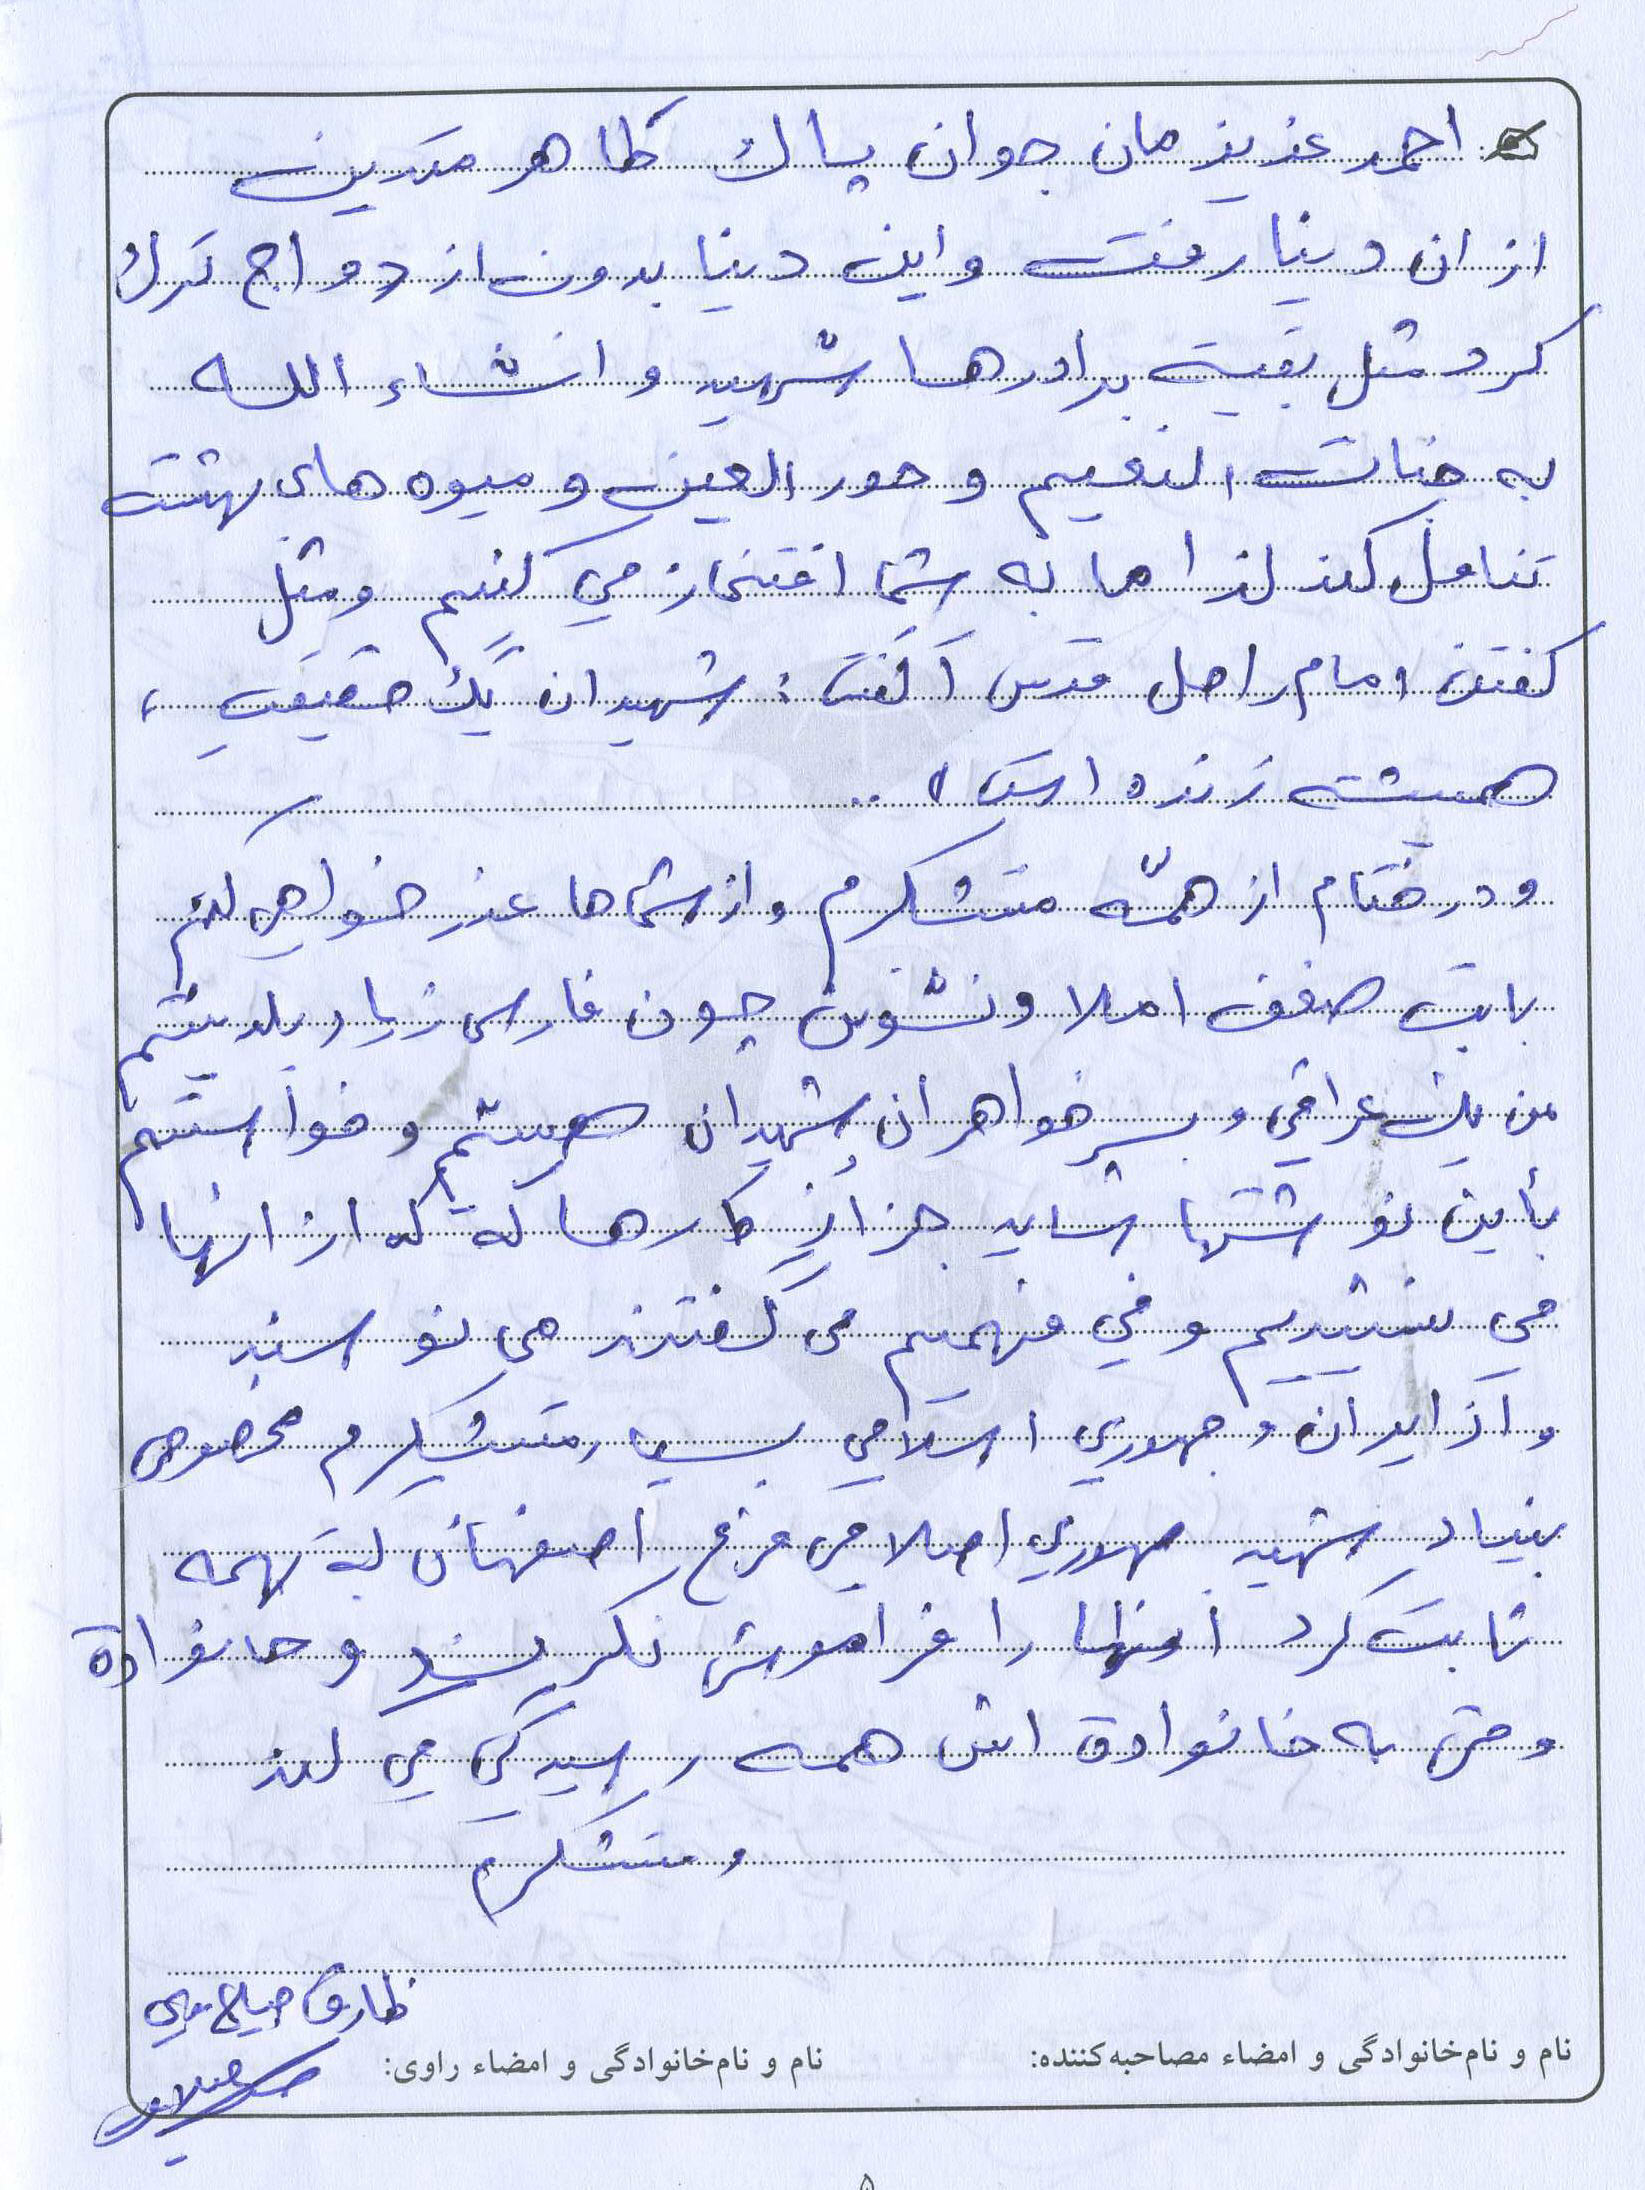 احمد عزیزمان جوان پاك طاهر متدین
از ان دینا رفت و این دینا بدون از دواج ترك
کرد مثل بقیة برادرها شهید و انشاء الله
به جنات النعیم و حور العین و میوه های بهشت
تناول کند لذا ما به شما افتخار می کنیم و مثل
گفتن امام راحل قدس گفت : شهیدان یک حقیقت
همیشه زنده است ..
و در ختام از همّه متشکرم و از شماها عذر خواهی کنم
بابت ضعف املا و نشوتن چون فارسی زیاد بلد نیشتم
من یک عراقی و پسر خواهران شهیدان هستم و خواستم
بأین نوشتها شاید جز از کارها که که از انها
می شنیدیم و می فهمیم می گفتند می نو سند
و از ایران و جمهوري اسلامي بسیار متشکرم مخصوص
بنیاد شهید جمهوري اسلامی فرع اصفهان که بهمه
ثابت کرد را فراموش نکردند و خانوادة
و حتی به خانوادة اش همه رسیدگی می کند
و متشکرم
طارق صالح
نام و نام‌خانوادگی و امضاء مصاحبه‌کننده: نام و نام‌خانوادگی و امضاء راوی:
۵